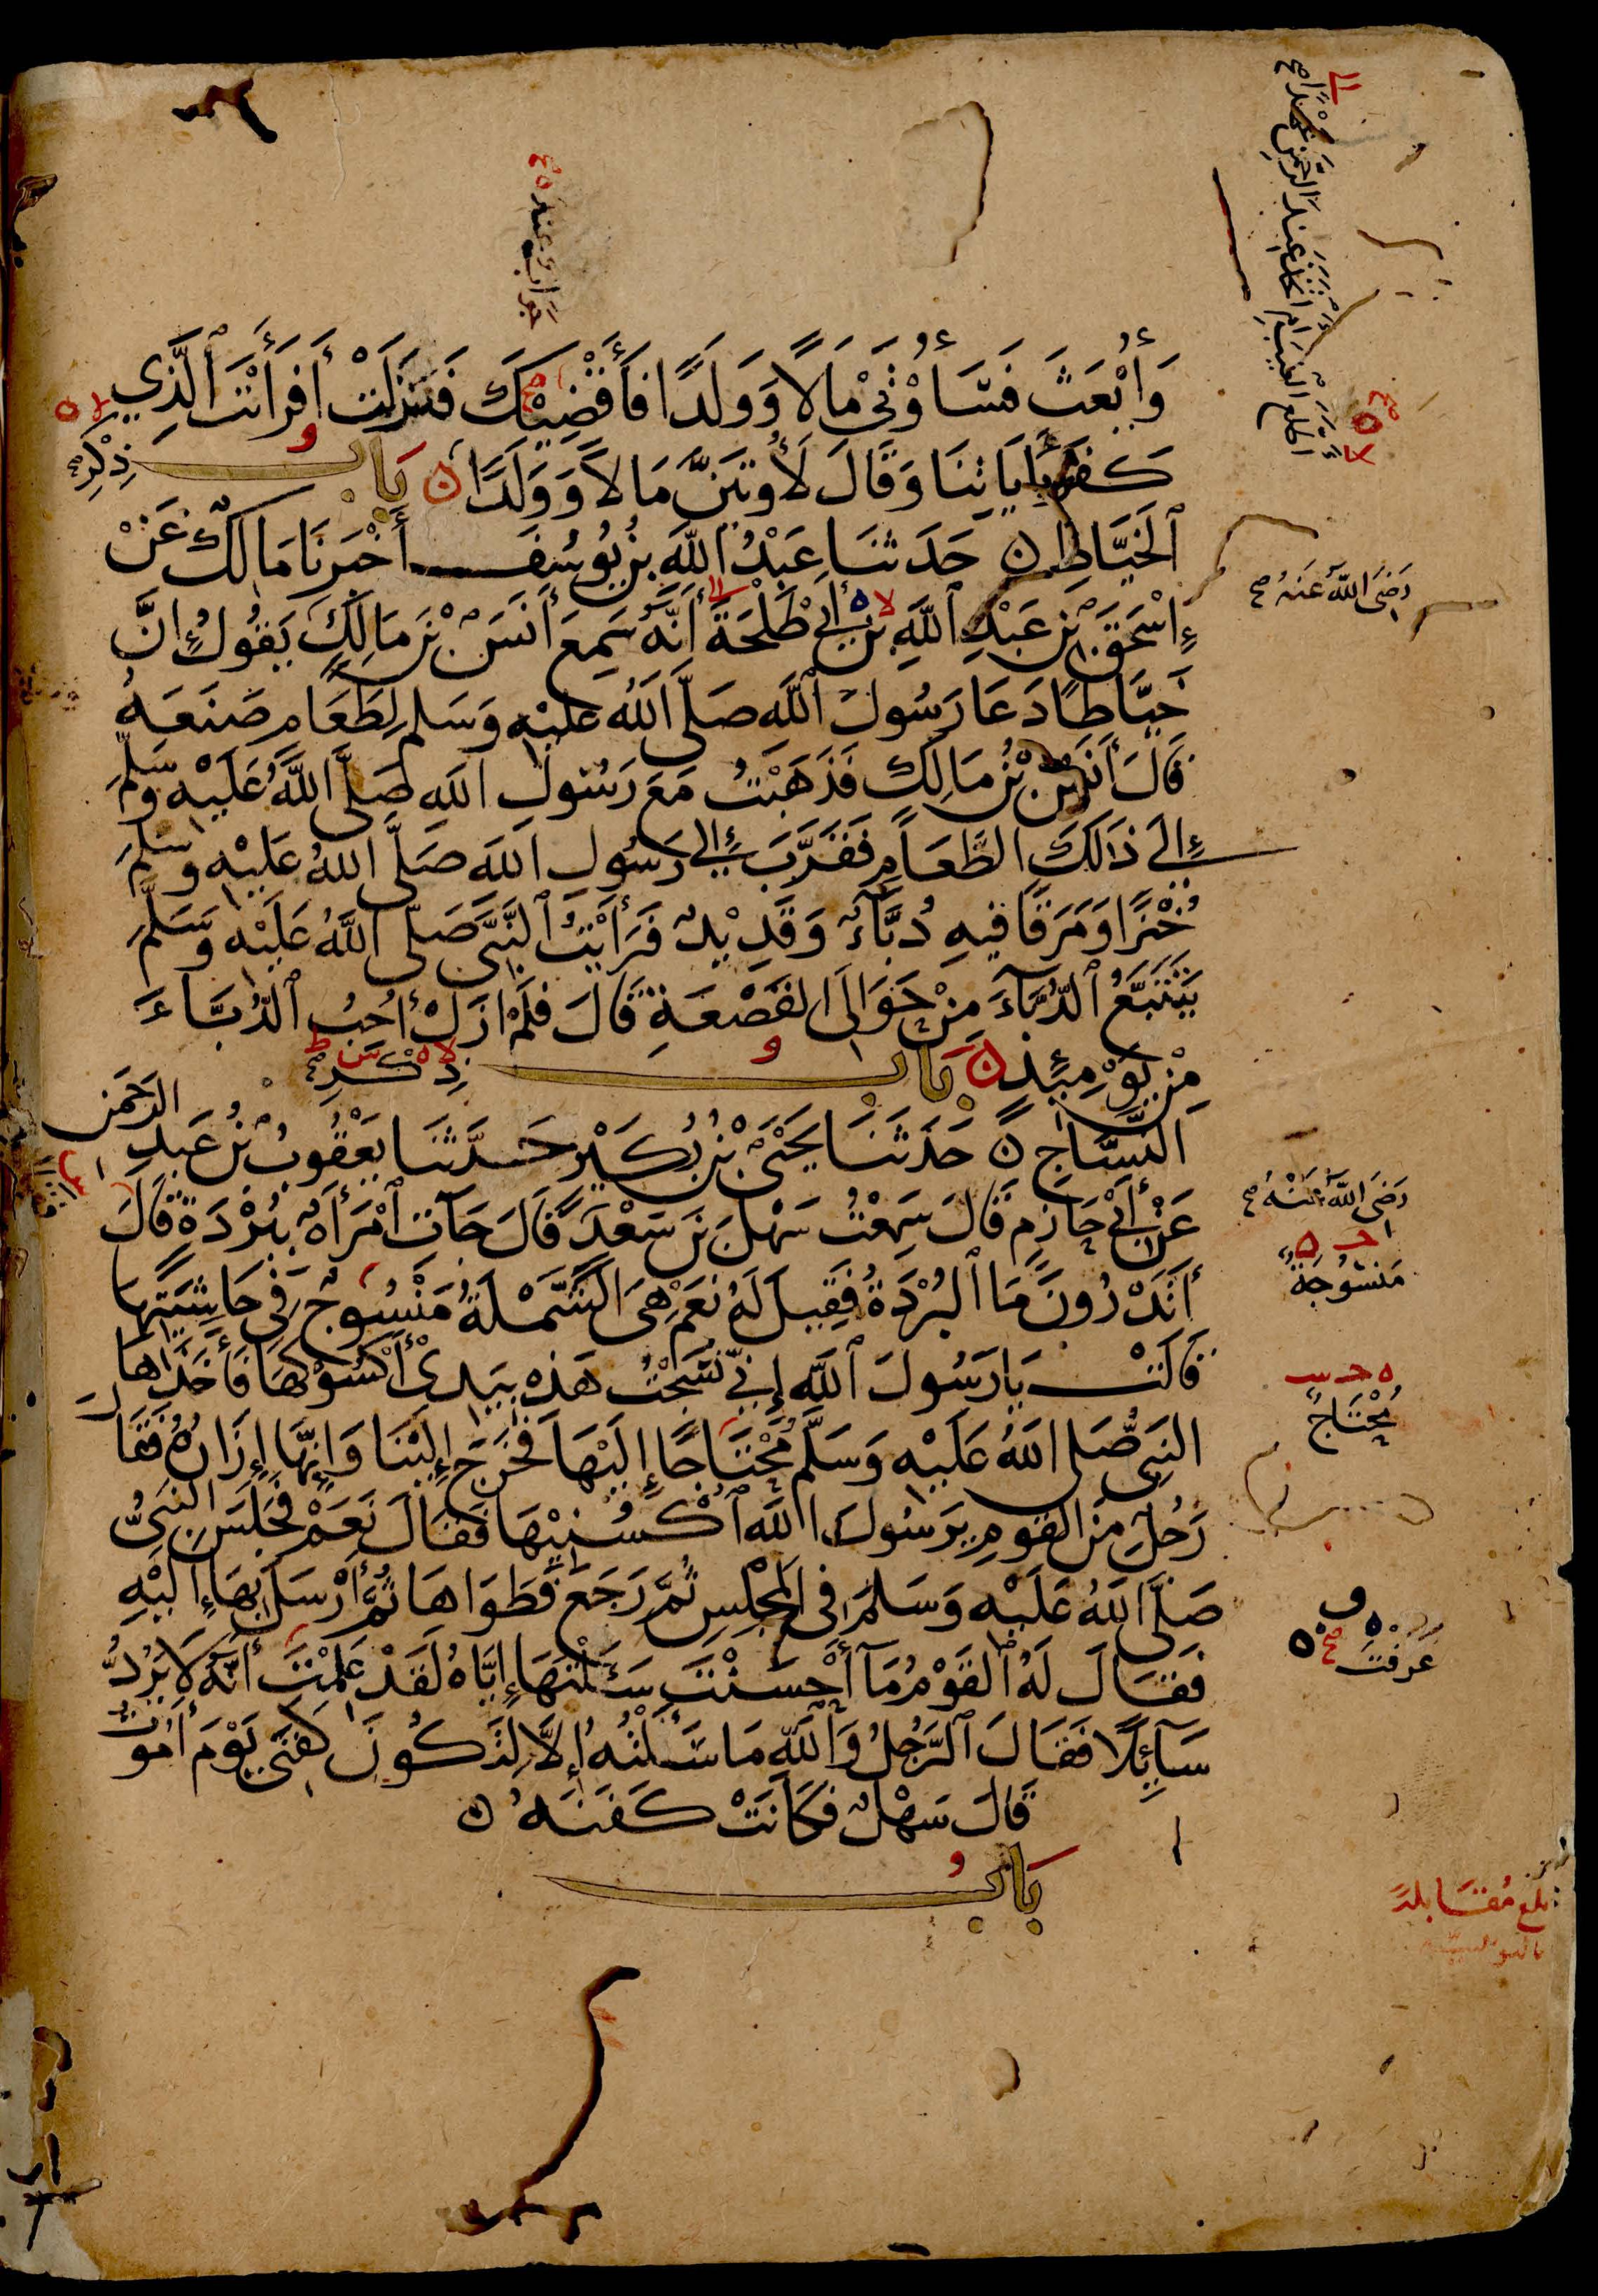 وَأُبْعَثَ فَسَأُوْتَى مَالًا وَوَلَدًا فَأَقْضِيْكَ فَنَزَلَتْ أَفَرَأَيْتَ ٱلَّذِي
كَفَرَ بِأَيَاتِنَا وَقَالَ لَأُوتَيَنَّ مَالًا وَوَلَدًا ن بَابُ ذِكْرِ صح
ٱلْخَيَّاطِ ن حَدَثَنَا عَبْدُ ٱللَّهِ بْنُ يُوسُفَ أَخْبَرَنَا مَالِكٌ عَنْ
إِسْحَقَ بْنِ عَبْدِ ٱللَّهِ بْنِ أَبِي طَلْحَةَ أَنَّهُ سَمِعَ أَنَسَ بْنَ مَالِكٍ يَقُولُ إِنَّ
خَيَّاطًا دَعَا رَسُولَ ٱللَّهِ صَلَّى اللَّهُ عَلَيْهِ وَسَلَّمَ لِطَعَامٍ صَنَعَهُ
قَالَ أَنَسُ بْنُ مَالِكٍ فَذَهَبْتُ مَعَ رَسُولِ اللَّهِ صَلَّى اللَّهُ عَلَيْهِ وَسَلَّمَ
إِلَى ذَلِكَ الطَّعَامِ فَقَرَّبَ إِلَى رَسُولِ اللَّهِ صَلَّى اللَّهُ عَلَيْهِ وَسَلَّمَ
خُبْزًا وَمَرَقًا فِيهِ دُبَّآءٌ وَقَدِيْدٌ فَرَأَيْتُ ٱلنَّبِيَّ صَلَّى اللَّهُ عَلَيْهِ وَسَلَّمَ
يَتَتَبَّعُ ٱلدُّبَّآءَ مِنْ حَوَالَىِ الْقَصْعَةِ قَالَ فَلَمْ ازَلْ أُحِبُّ ٱلدُّبَّاءَ
مِنْ يَوْمِئِذٍ ن بَابُ ذِكْرِ صح
النَّسَّاجِ ن حَدَثَنَا يَحْيَى بْنُ بُكَيْرٍ حَدَّثَنَا يَعْقُوبُ بْنُ عَبْدِ الرَّحْمَنِ
عَنْ أَبِي حَازِمٍ قَالَ سَمِعْتُ سَهْلَ بْنَ سَعْدٍ قَالَ جَآتِ ٱمْرَأَةٌ بِبُرْدَةٍ قَالَ
أَتَدْرُونَ مَا ٱلْبُرْدَةُ فَقِيلَ لَهُ نَعَمْ هِيَ الشَّمْلَةُ مَنْسُوجٌ فِي حَاشِيَتِهَا
قَالَتْ يَا رَسُولَ ٱللَّهِ إِنِّي نَسَجْتُ هَذِهِ بِيَدِيْ أَكْسُوْكَهَا فَأَخَذَهَا
النَّبِيُّ صَلَّى اللَّهُ عَلَيْهِ وَسَلَّمَ مُحْتَاجًا إِلَيْهَا فَخَرَجَ إِلَيْنَا وَإِنَّهَا إِزَارُهُ فَقَالَ
رَجُلٌ مِنَ الْقَوْمِ يَرَسُولَ اللَّهِ ٱكْسُنِيْهَا فَقَالَ نَعَمْ فَجَلَسَ النَّبِيُّ
صَلَّى اللَّهُ عَلَيْهِ وَسَلَّمَ فِي الْمَجْلِسِ ثُمَّ رَجَعَ فَطَوَاهَا ثُمَّ أَرْسَلَ بِهَا إِلَيْهِ
فَقَالَ لَهُ ٱلْقَوْمُ مَآ أَحْسَنْتَ سَأَلْتَهَا إِيَّاهُ لَقَدْ عَلِمْتَ أَنَّهُ لَا يَرُدُّ
سَآئِلًا فَقَالَ ٱلرَّجُلُ وَٱللَّهِ مَا سَأَلْتُهُ إِلَّا لِتَكُونَ كَفَنِي يَوْمَ أَمُوتُ
قَالَ سَهْلٌ فَكَانَتْ كَفَنَهُ ن
بَابُ
اطَّلَعَ الْغَيْبَ أَمِ اتَّخَذَ عِنْدَ الرَّحْمَنِ عَهْدًا صح
رَضِيَ اللَّهُ عَنْهُ صح
رَضِيَ اللَّهُ عَنْهُ صح
مَنْسُوجَةٌ
مُحْتَاجٌ
عَرَفْتَ
بلغ مُقَابلة